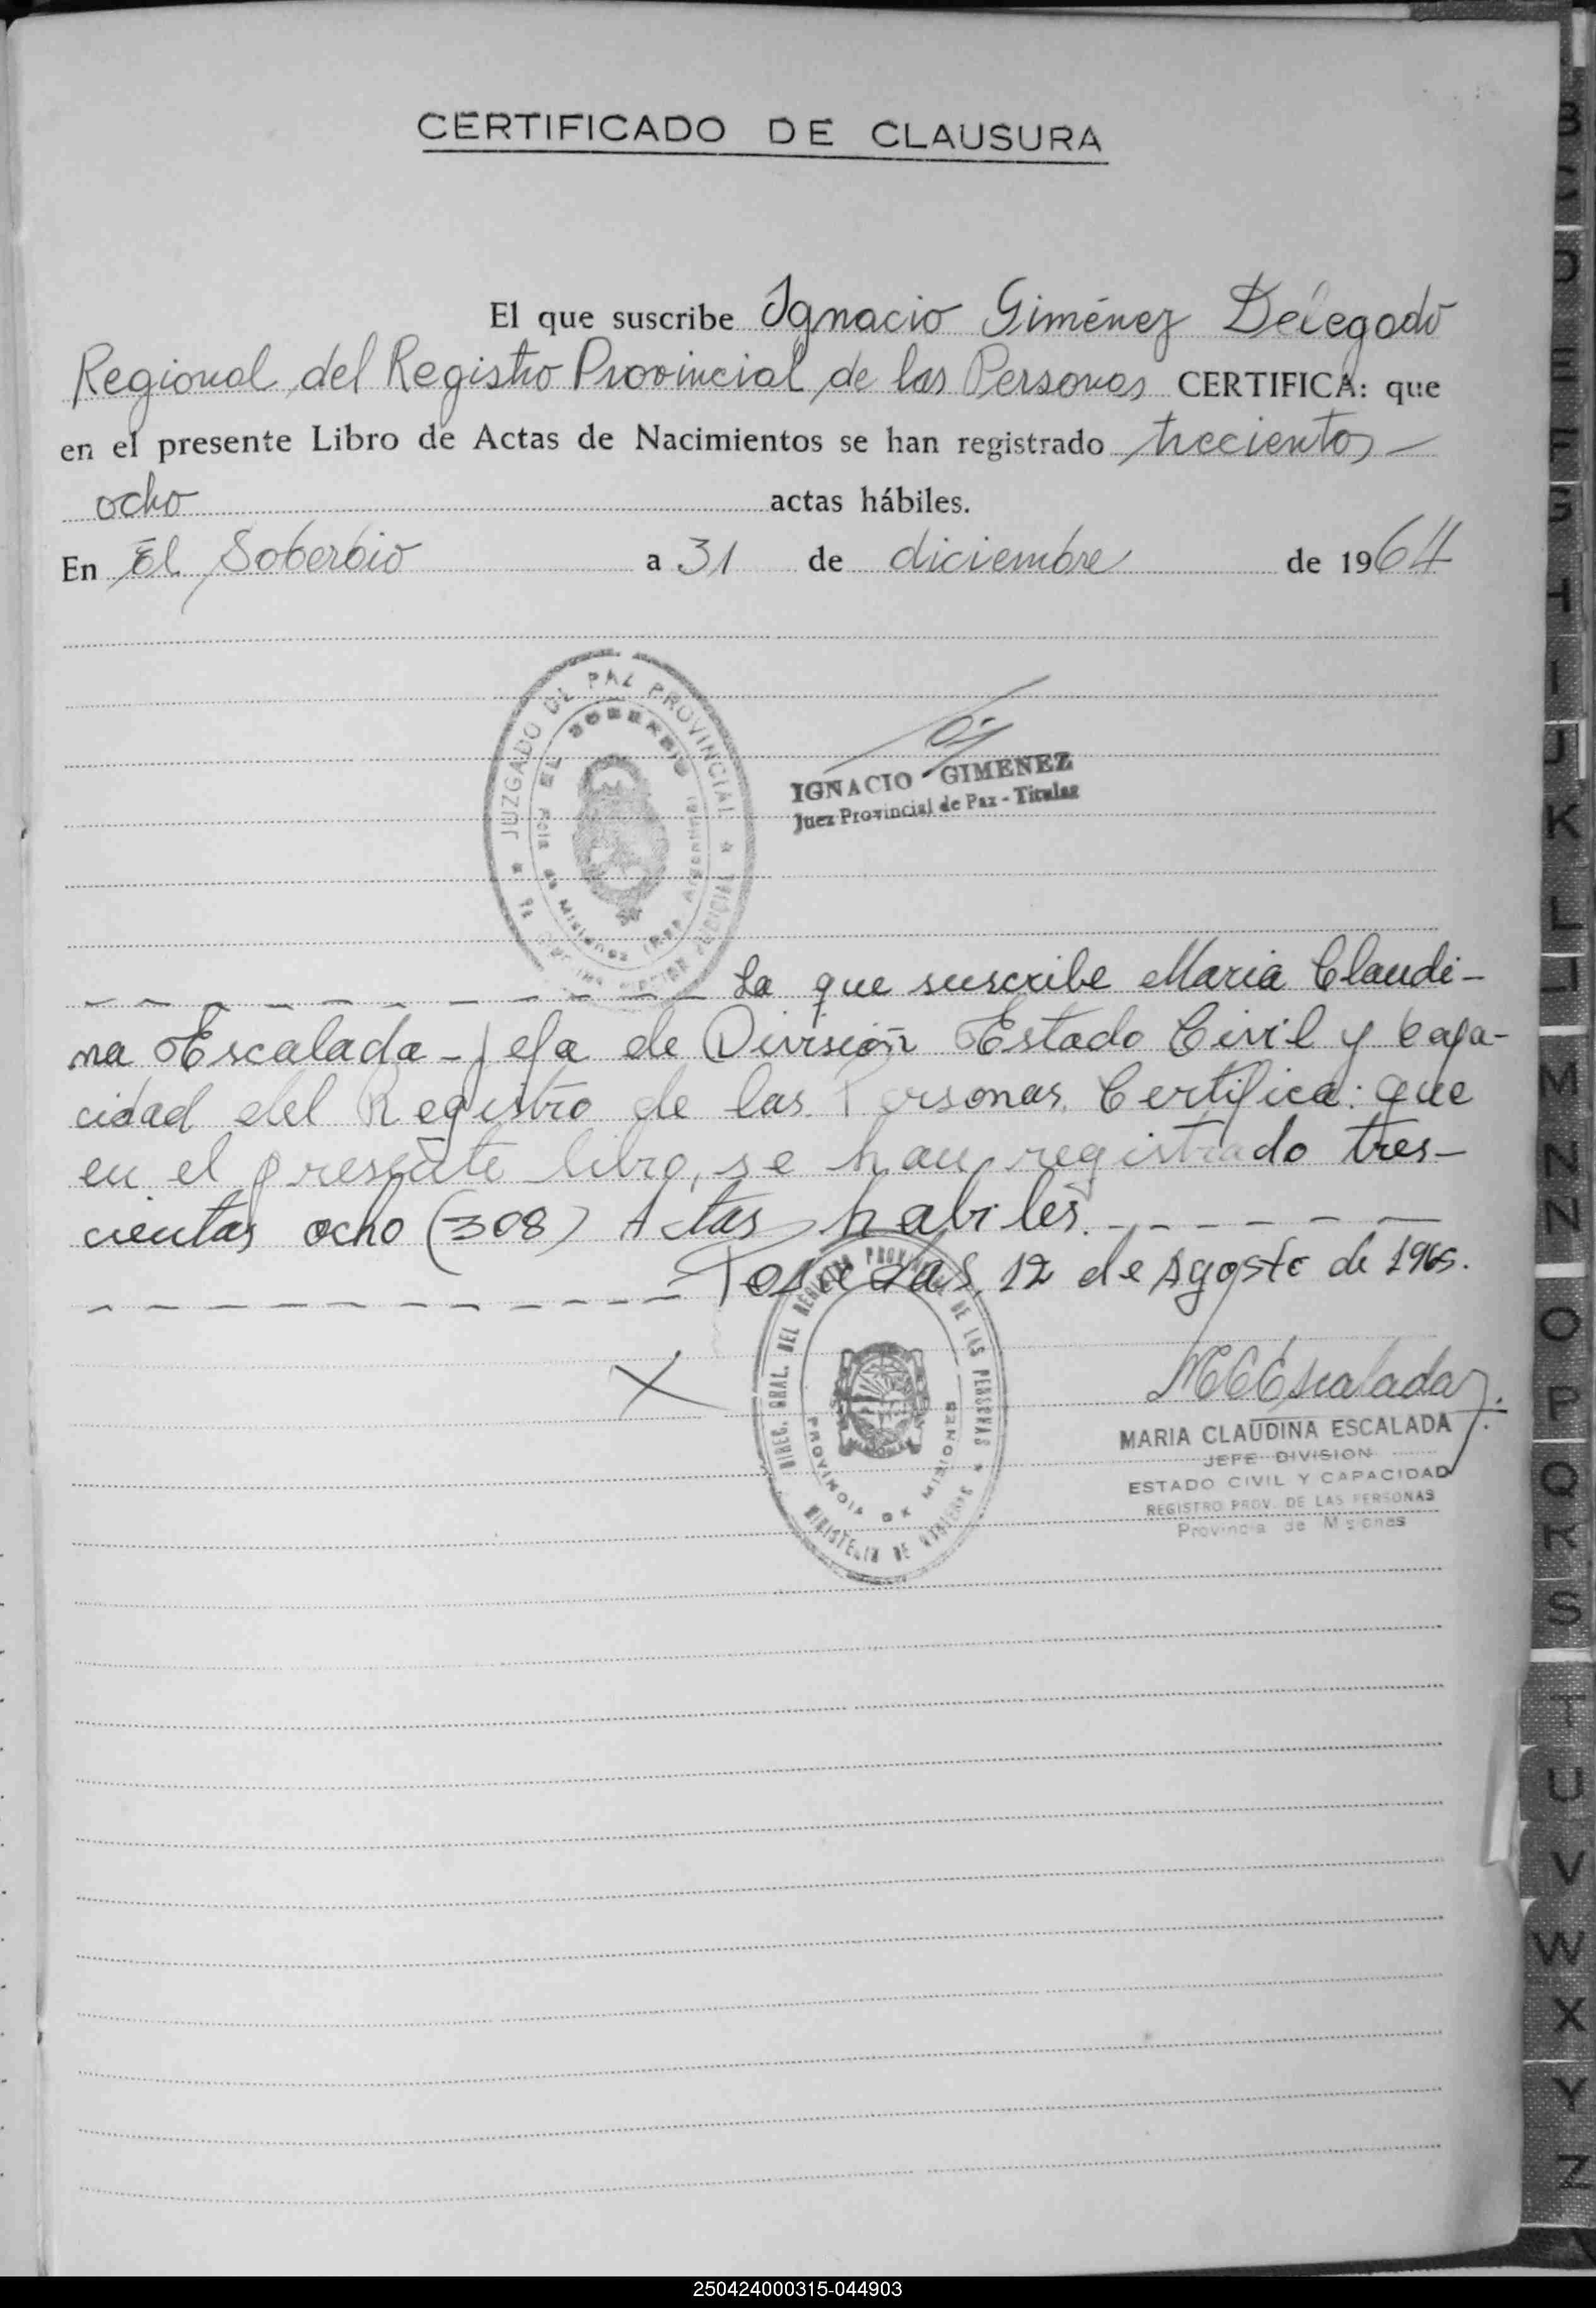 CERTIFICADO DE CLAUSURA
El que suscribe Ignacio Giménez Delegado
Regional del Registro Provincial de las Personas CERTIFICA: que
en el presente Libro de Actas de Nacimientos se han registrado trecientos
ocho actas hábiles.
En El Soberbio a 31 de diciembre de 1964
JUZGADO DE PAZ PROVINCIAL
EL SOBERBIO
IGNACIO GIMENEZ
Juez Provincial de Paz - Titular
La que suscribe Maria Claudi-
na Escalada - Jefa de División Estado Civil y Capa-
cidad del Registro de las Personas, Certifica: que
en el presente libro, se han registrado tres-
cientas ocho (308) Actas habiles.
Posadas, 12 de Agosto de 1965.
DIREC. GRAL. DEL REGISTRO PROVINCIAL DE LAS PERSONAS
PROVINCIA DE MISIONES
MCEscalada
MARIA CLAUDINA ESCALADA
JEFE DIVISION
ESTADO CIVIL Y CAPACIDAD
REGISTRO PROV. DE LAS PERSONAS
Provincia de Misiones
B
C
D
E
F
G
H
I
J
K
L
LL
M
N
Ñ
O
P
Q
R
S
T
U
V
W
X
Y
Z
250424000315-044903